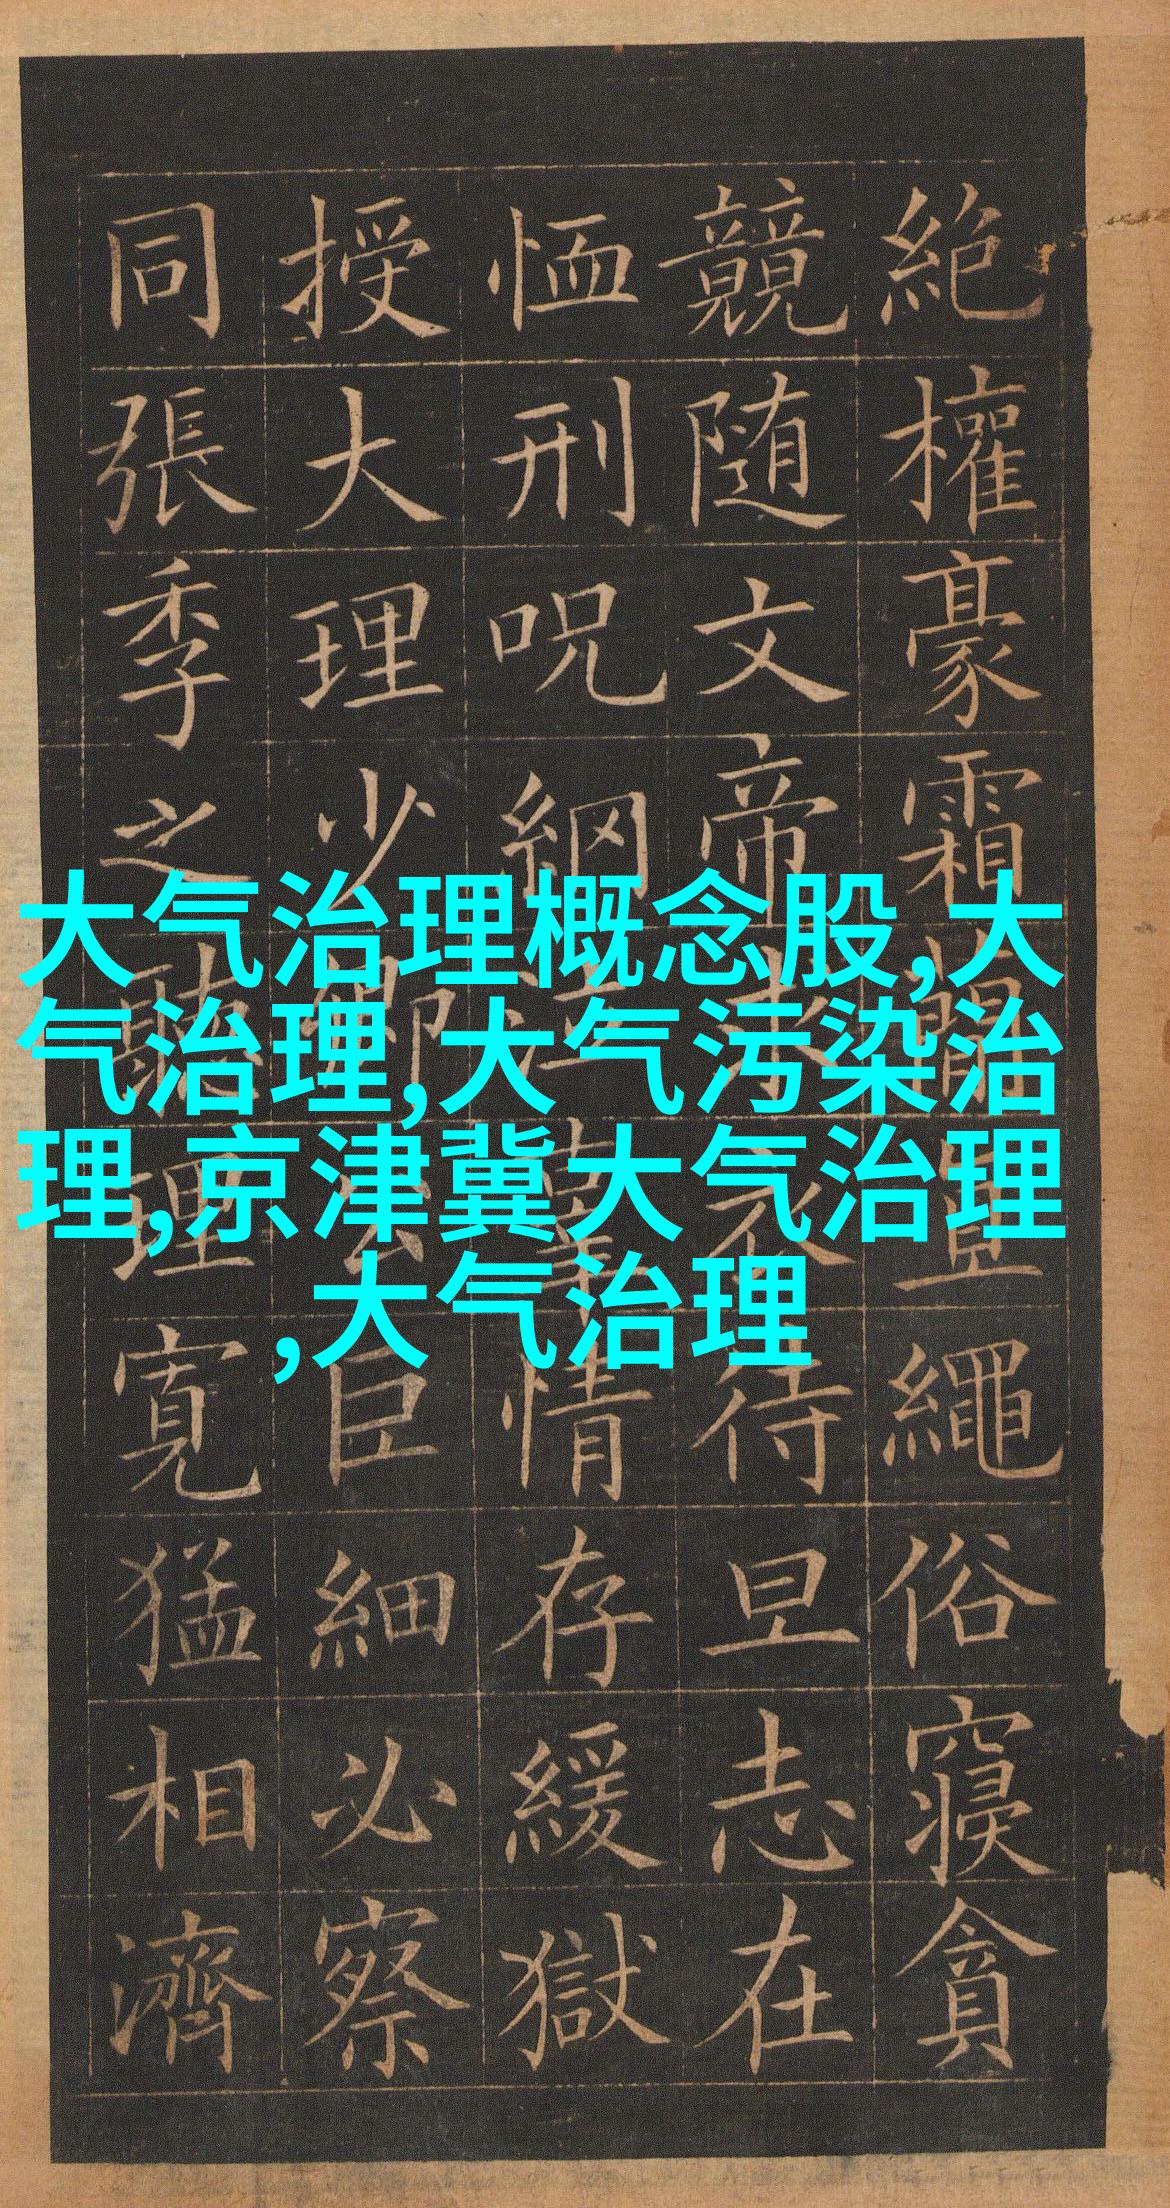 絶權豪霜簡直繩俗寢貪
競随文帝求衣待旦志在
恤刑呪網泣辜情存緩獄
授大理少卿公巨細必察
同張季之聽理寬猛相濟
大气治理概念股,大
气治理,大气污染治
理,京津冀大气治理
,大气治理